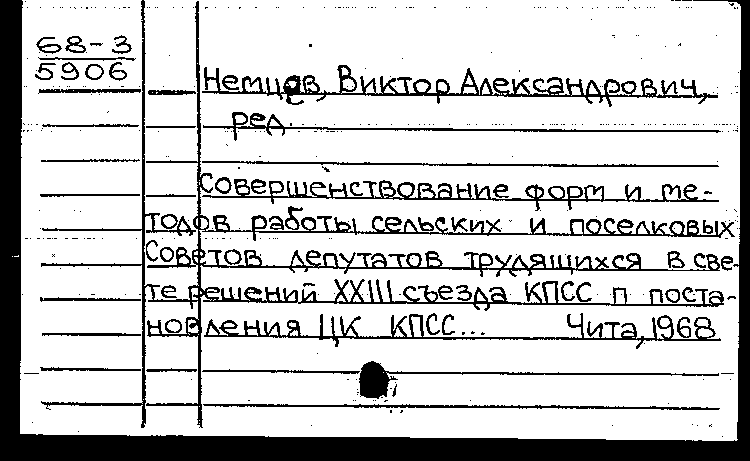 68-3
5906
Немцов, Виктор Александрович,
ред.
Совершенствование форм и ме-
тодов работы сельских и поселковых
Советов депутатов трудящихся в све-
те решений XXIII съезда КПСС п поста-
новления ЦК КПСС... Чита, 1968